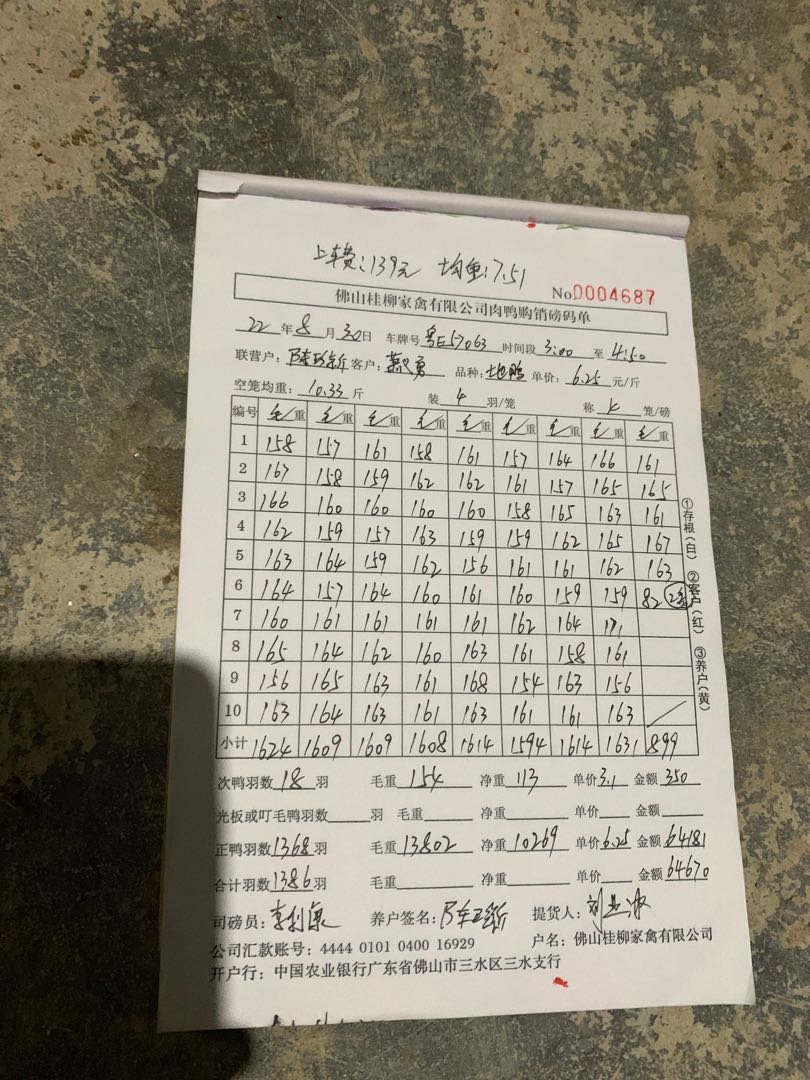 上车费:139元 均重:7.51
No.0004687
佛山桂柳家禽有限公司肉鸭购销磅码单
22年8月30日 车牌号 粤E57063 时间段 3:00 至 4:50
联营户: 客户: 勇 品种: 单价: 6.25 元/斤
空笼均重: 10.33 斤 装 4 羽/笼 称 4 笼/磅
编号 毛/重 毛/重 毛/重 毛/重 毛/重 毛/重 毛/重 毛/重 毛/重
1 158 157 161 158 161 157 164 166 161
2 167 158 159 162 162 161 157 165 165
3 166 160 160 160 160 158 165 163 161
4 162 159 157 163 159 159 162 165 167
5 163 164 159 162 156 161 161 162 163
6 164 157 164 160 161 160 159 159 82
7 160 161 161 161 161 162 164 171
8 165 164 162 160 163 161 158 161
9 156 165 163 161 168 154 163 156
10 163 164 163 161 163 161 161 163 /
小计 1624 1609 1609 1608 1614 1594 1614 1631 899
次鸭羽数 18 羽 毛重 154 净重 113 单价 3.1 金额 350
光板或叮毛鸭羽数 羽 毛重 净重 单价 金额
正鸭羽数 1368 羽 毛重 13802 净重 10269 单价 6.25 金额 64181
合计羽数 1386 羽 毛重 净重 单价 金额 64670
司磅员: 李利康 养户签名: 提货人: 刘
公司汇款账号: 4444 0101 0400 16929 户名: 佛山桂柳家禽有限公司
开户行: 中国农业银行广东省佛山市三水区三水支行
①存根(白) ②客户(红) ③养户(黄)